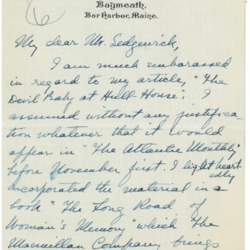 Baymeath.
Bar Harbor, Maine.
My dear Mr. Sedgwick,
I am much embarassed
in regard to my article, "The
Devil Baby at Hull-House". I
assumed without any justifica
tion whatever that it would
appear in "The Atlantic Monthly"
before November first. I light heart
edly
incorporated the material in a
book "The Long Road of
Woman's Memory" which the
Macmillan Company brings